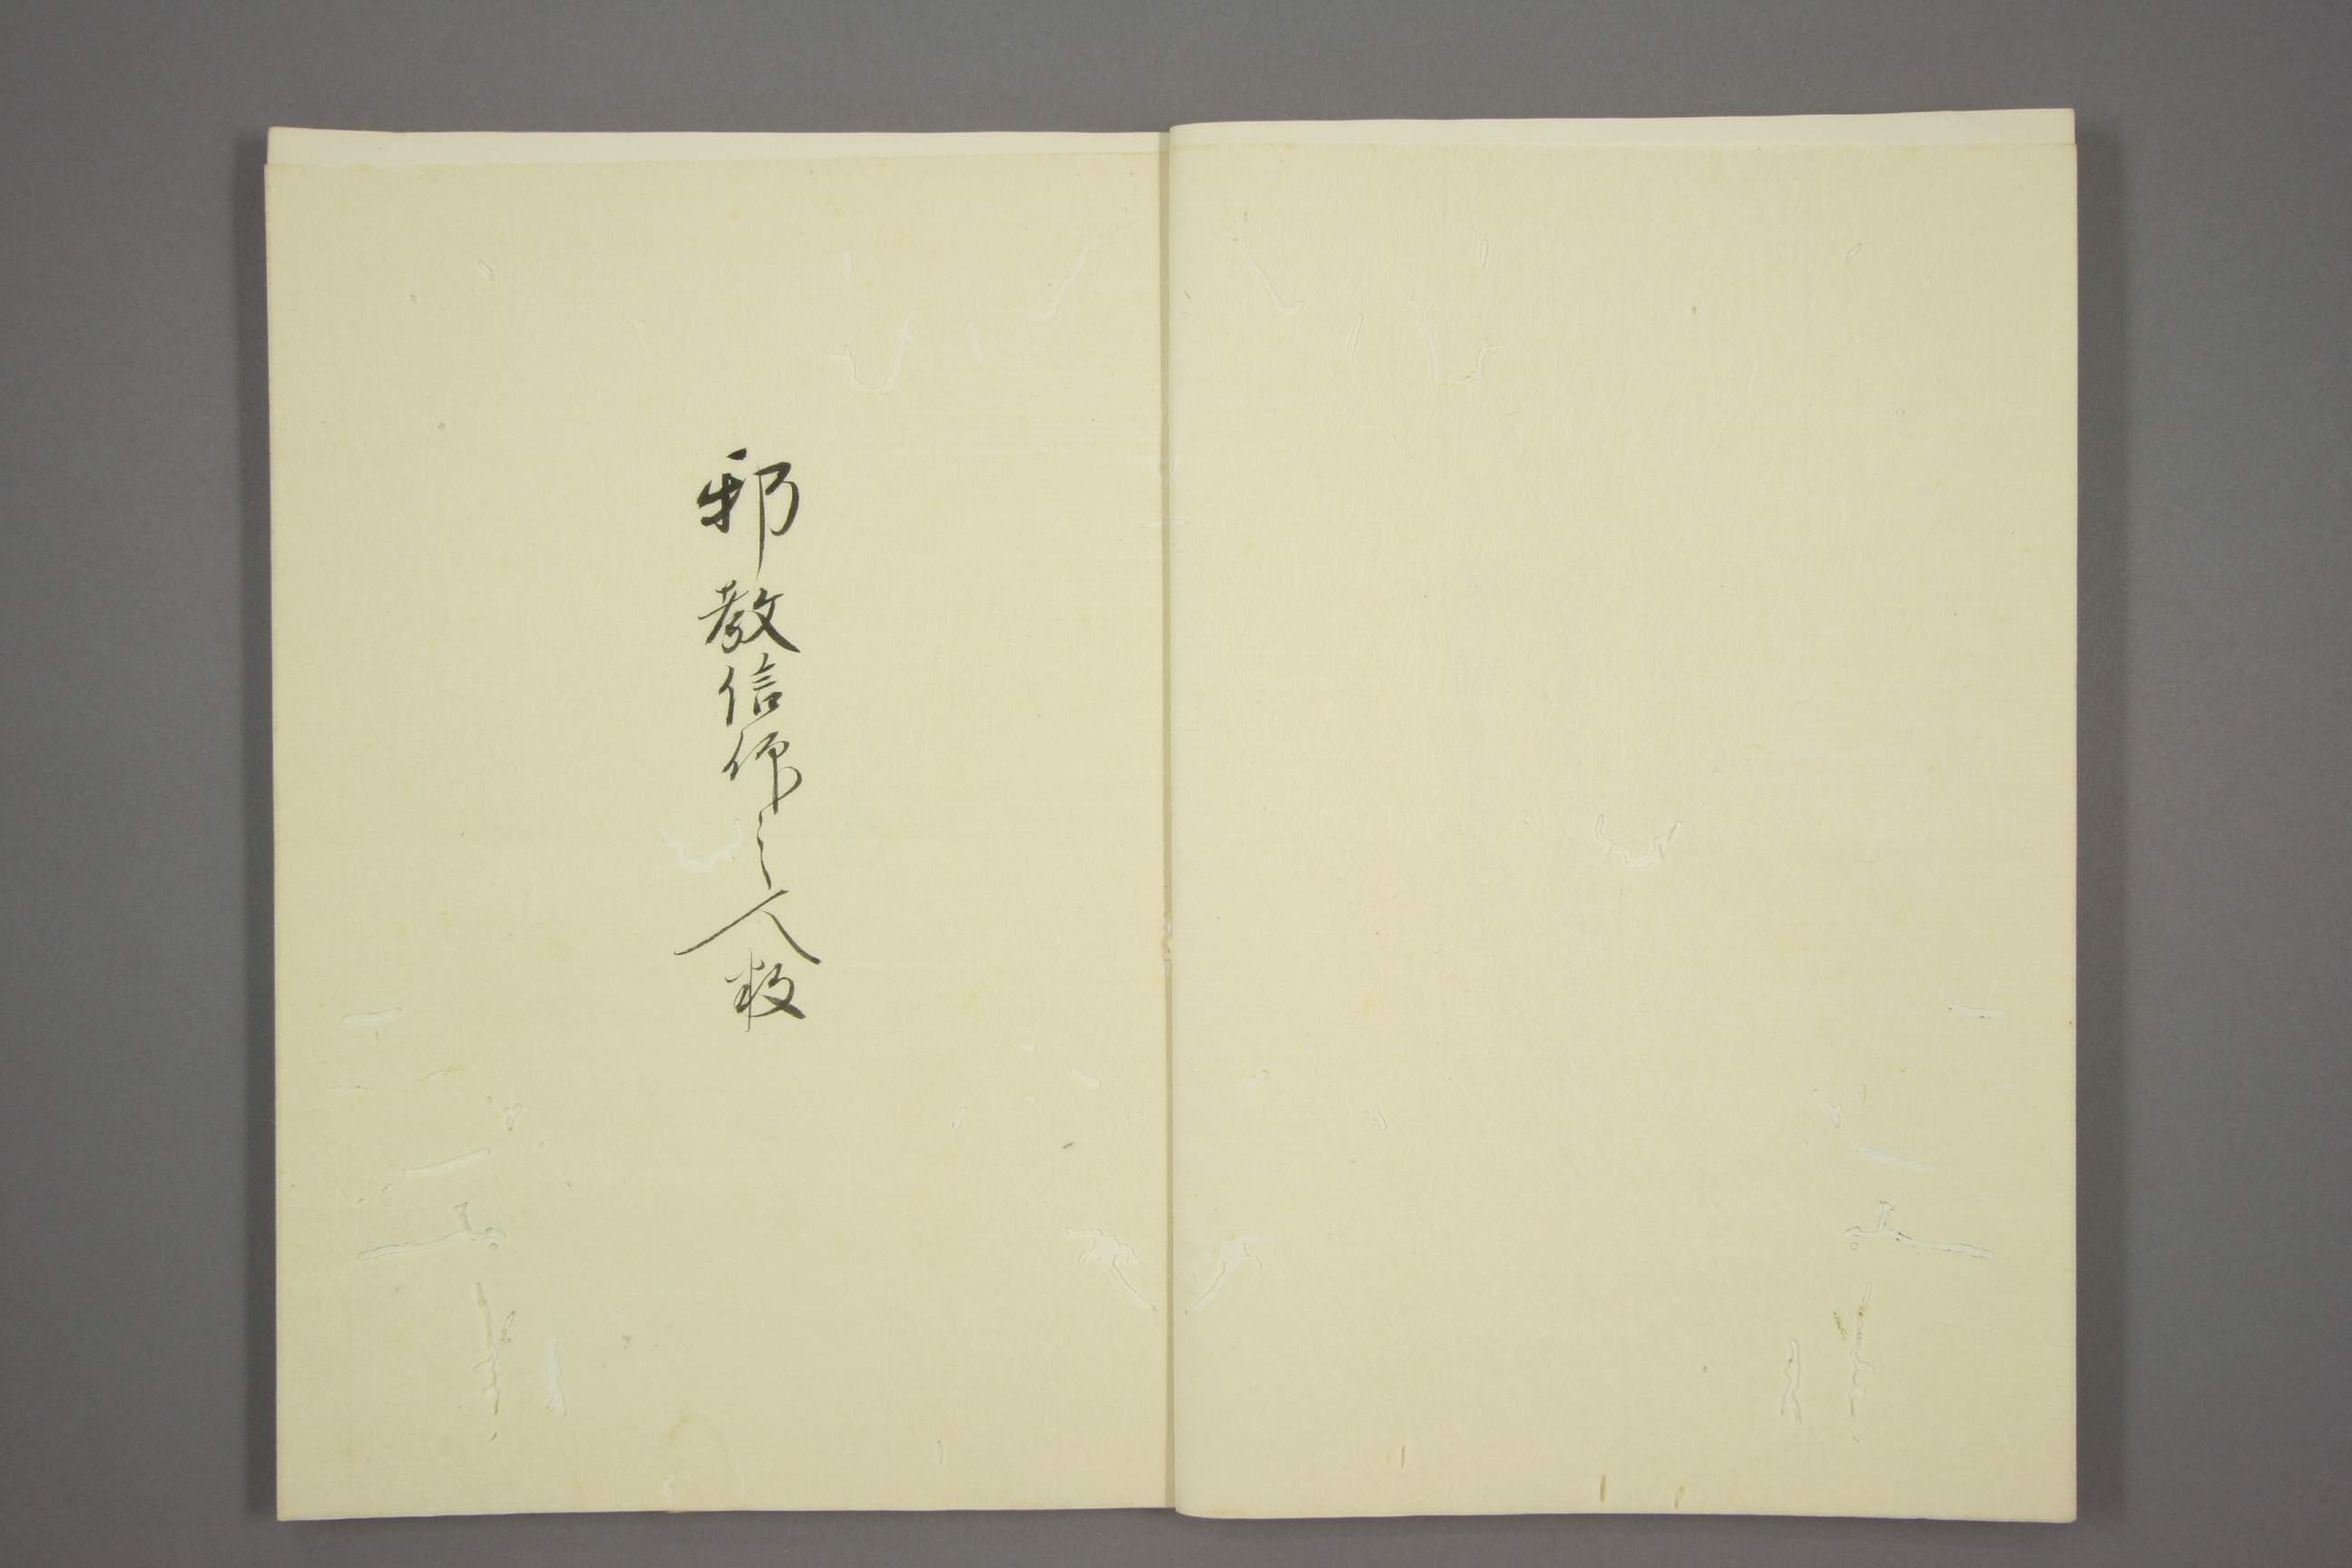 邪教信仰之人数